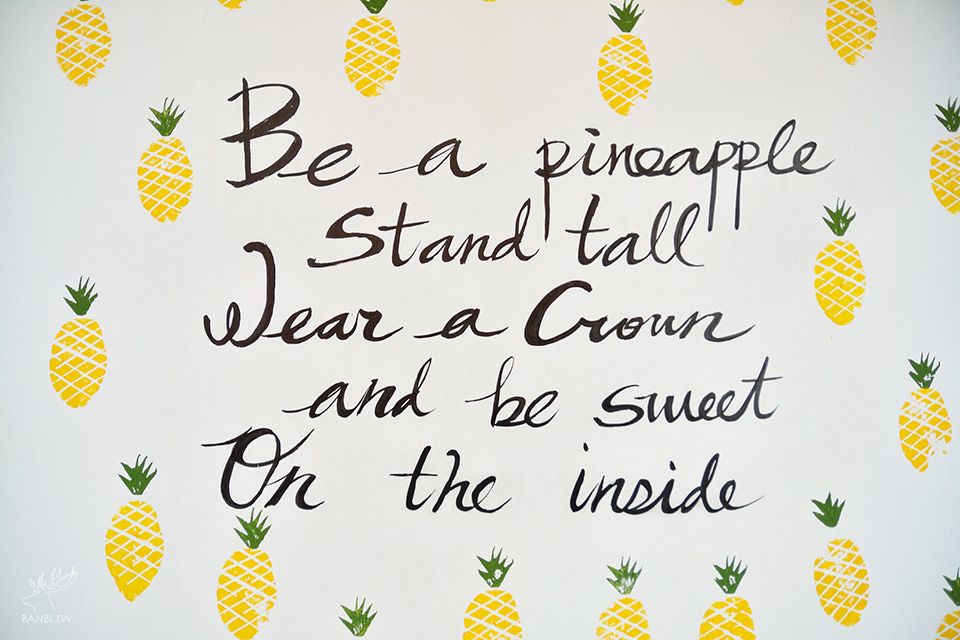 Be a pineapple
Stand tall
Wear a Crown
and be sweet
On the inside
BANBI.TW